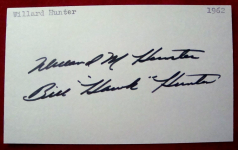 Willard Hunter 1962
Willard M Hunter
Bill "Hawk" Hunter